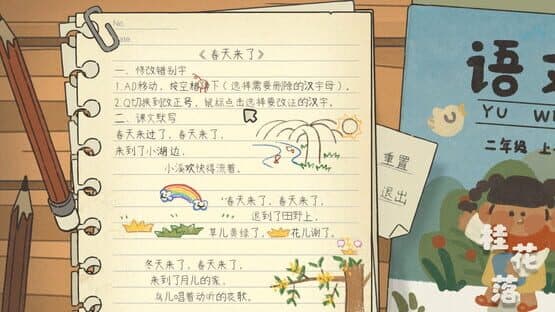 No.
Date.
《春天来了》
一、修改错别字
1.AD移动，按空格
下（选择需要删除的汉字母）。
2.Q切换到改正号，鼠标点击选择要改正的汉字。
二、课文默写
春天来过了，春天来了，
来到了小湖边，
小溪欢快得流着。
“春天来了，春天来了，
迟到了田野上，
草儿黄绿了，
花儿谢了。
冬天来了，春天来了，
来到了月儿的家，
鸟儿唱着动听的哀歌。
重置
退出
语
YU
二年级 上
桂花落